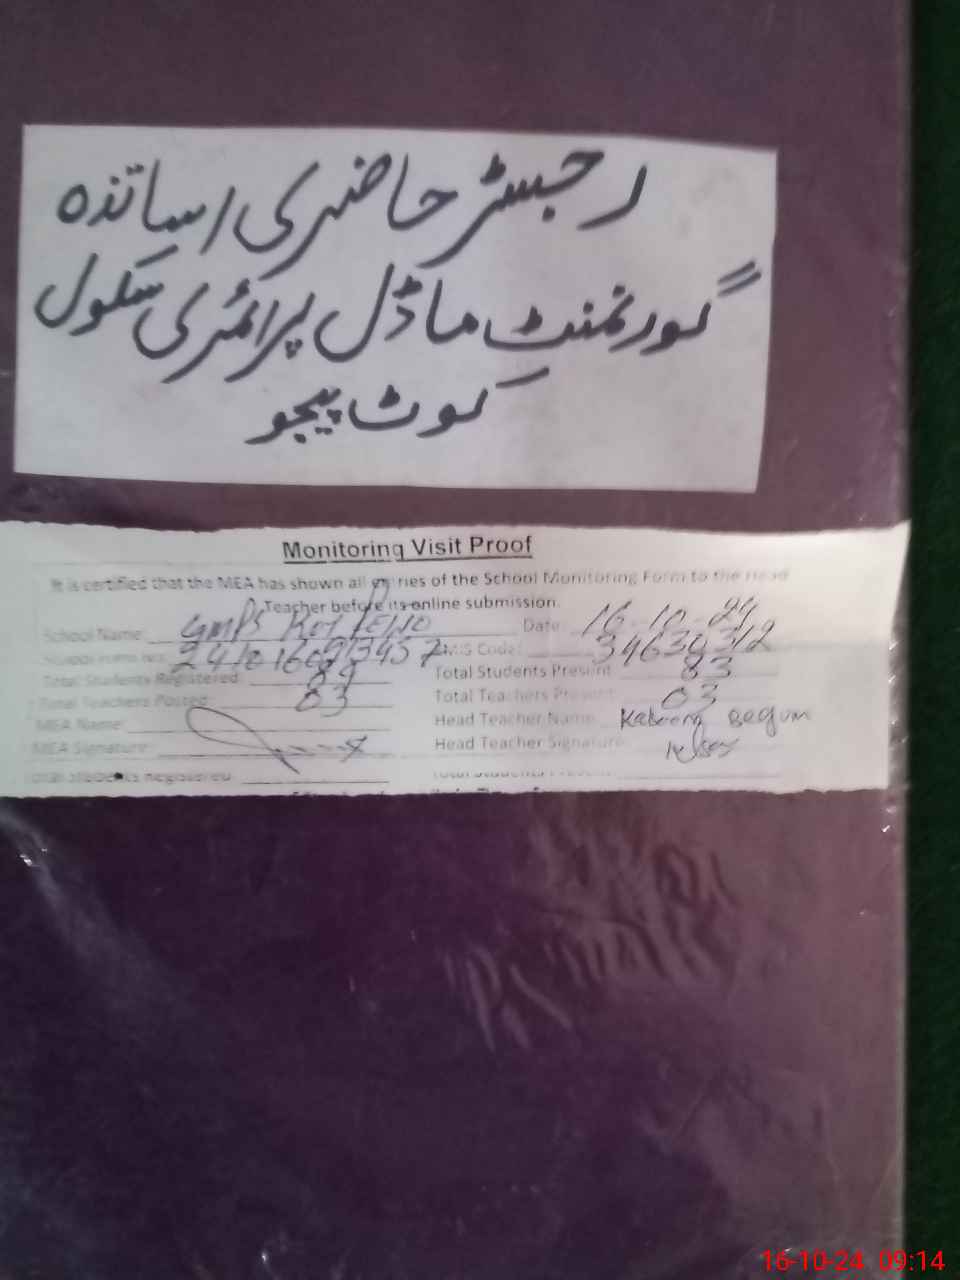 رجسٹر حاضری اساتذہ
گورنمنٹ ماڈل پرائمری سکول
کوٹ پیجو
Monitoring Visit Proof
It is certified that the MEA has shown all entries of the School Monitoring Form to the Head
Teacher before its online submission.
School Name: GMPS Kot Date: 16-10-24
Code: 34630312
Total Students Registered: 89 Total Students Present: 83
Total Teachers Posted: 03 Total Teachers Present: 03
MEA Name: Head Teacher Name: Begum
MEA Signature: Head Teacher Signature:
Total Students Registered Total Students Present
16-10-24 09:14